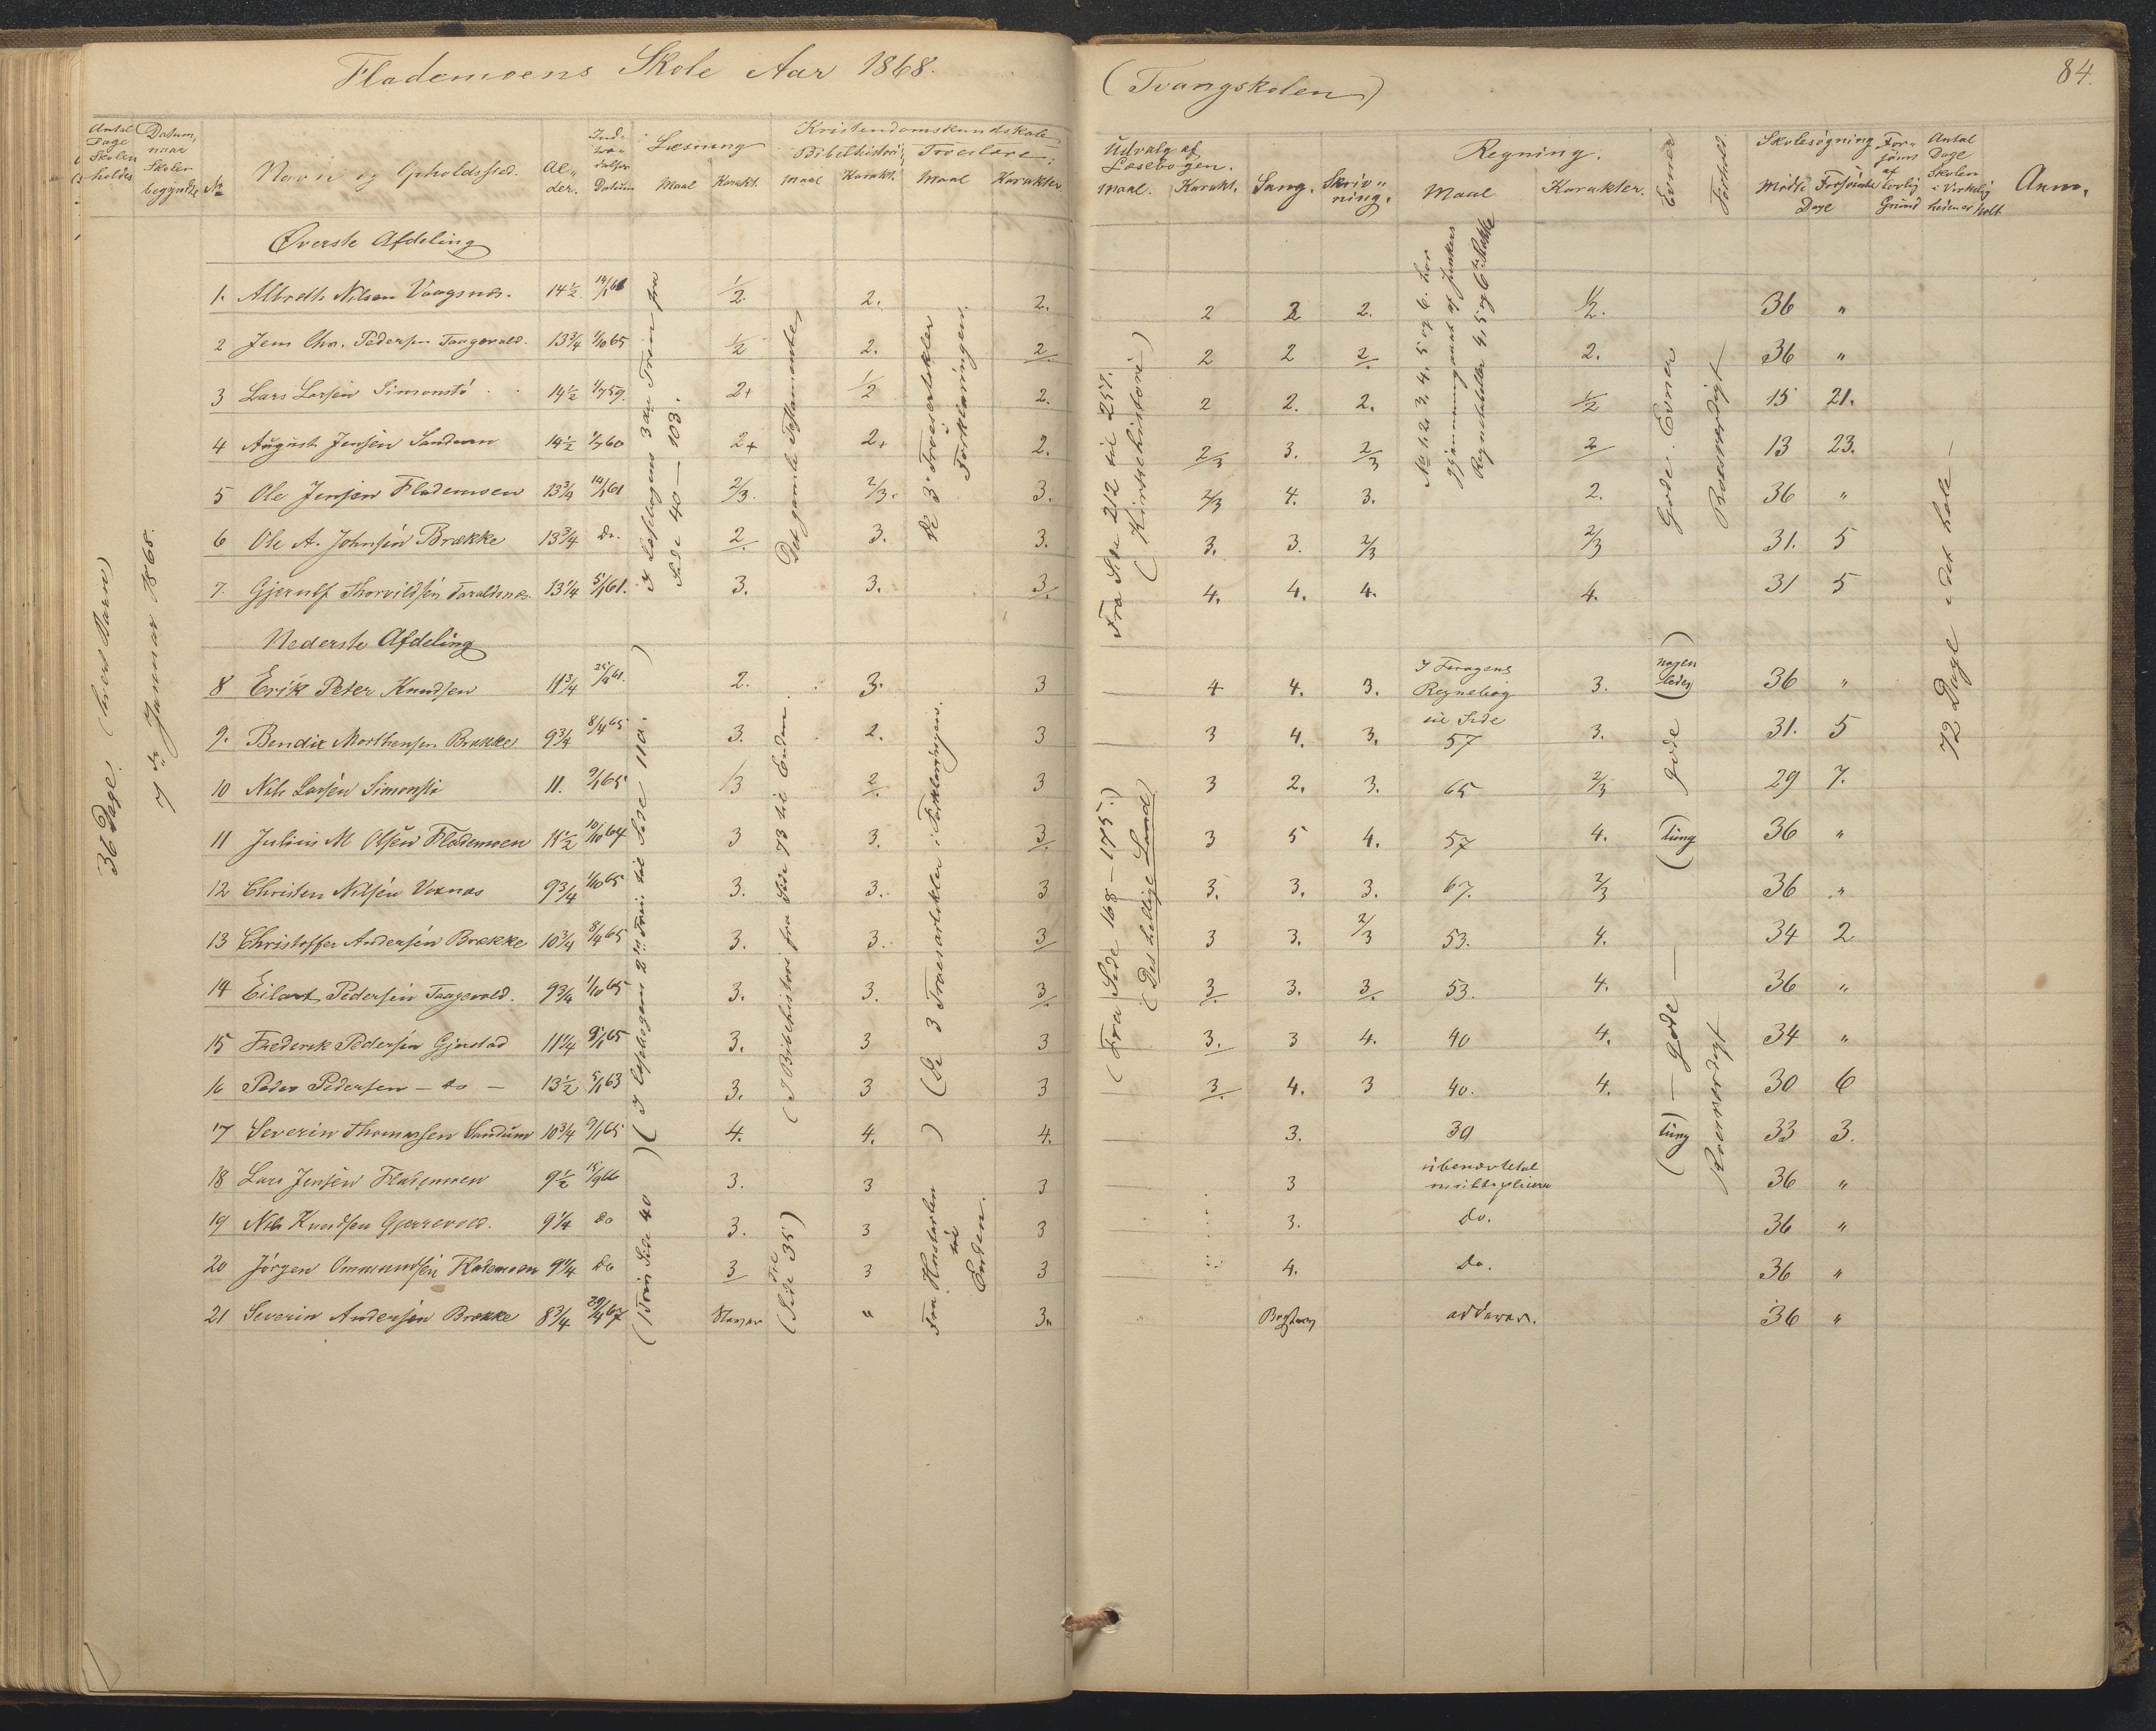 Flademoens Skole Aar 1868.
(Tvangskolen)
84.
Antal Dage Skolen holdes
Datum, naar Skolen begyndte
No
Navn og Opholdssted.
Alder.
Indtrædelses Datum
Læsning
Maal Karakt.
Kristendomskundskab
Bibelhistori; Troeslære;
Maal Karakt. Maal Karakter.
Udvalg af Læsebogen.
Maal. Karakt. Sang. Skrivning.
Regning.
Maal Karakter.
Evner
Forhold.
Skolesøgning
Mødte Forsømte Dage
Forsømt af lovlig Grund
Antal Dage Skolen i Virkeligheden er holdt
Anm.
36 Dage (hvert Barn)
7de Januar 1868.
Øverste Afdeling
1. Albreth Nilsen Vaagsnes. 14½ 14/1 61 ½. 2. 2. 2 2 2. ½. 36 "
2 Jens Chr. Pedersen Taagevold. 13¾ 1/10 65 ½ 2. 2 2 2 2 2. 36 "
3 Lars Larsen Simonstø 14½ 1/7 59. 2+ ½ 2. 2 2. 2. ½ 15 21.
4 August Jensen Sandum 14½ 1/7 60 2+ 2+ 2. 2/3 3. 2/3 2 13 23.
5 Ole Jensen Flademoen 13¾ 14/1 61 2/3. 2/3. 3. 2/3 4. 3. 2. 36 "
6 Ole A. Johnsen Brække 13¾ do. 2. 3. 3. 3. 3. 2/3 2/3 31. 5
7. Gjerulf Thorvildsen Taraldsnes 13¼ 5/1 61. 3. 3. 3. 4. 4. 4. 4. 31 5
I Læsebogens 3die Trin fra Side 40 — 103.
Det gamle Testamente
De 3 Troesartikler Forklaringen.
Fra Side 212 til 257.
(Kirkehistori)
No 1. 2. 3. 4. 5 og 6. har gjennemgaaet af Regnetabeller 4, 5 og 6te Række
Gode Evner
Roesværdigt
72 Dage i det hele —
Nederste Afdeling
8 Erik Peter Knudsen 11¾ 25/4 61. 2. 3. 3 4 4. 3. I Regnebog 3. (nogenledes) 36 "
9. Bendix Morthensen Brække 9¾ 8/4 65 3. 2. 3 3 4. 3. til Side 57 3. 31. 5
10 Nils Larsen Simonstø 11. 9/1 65 /3 2. 3 3 2. 3. 65 2/3 29 7.
11 Julius M Olsen Flademoen 11½ 10/10 64 3 3. 3 3 5 4. 57 4. (tung) 36 "
12 Christen Nilsen Vexnæs 9¾ 1/10 65 3. 3. 3 3. 3. 3. 67. 2/3 36 "
13 Christoffer Andersen Brække 10¾ 8/4 65 3. 3. 3 3 3. 2/3 53. 4. 34 2
14 Eilert Pedersen Taagevold. 9¾ 1/10 65 3. 3. 3 3. 3. 3. 53. 4. 36 "
15 Frederik Pedersen Gjerstad 11¼ 9/1 65 3. 3 3 3. 3 4. 40 4. 34 "
16 Peder Pedersen — do — 13½ 5/1 63 3. 3 3 3. 4. 3 40. 4. 30 6
17 Severin Thomassen Sandum 10¾ 9/1 65 4. 4. 4. 3. 39 (tung) 33 3.
18 Lars Jensen Flademoen 9½ 15/9 66 3. 3 3 3 ubenævntetal multiplicere 36 "
19 Nils Knudsen Gjærrevold. 9¼ do 3. 3 3 3. do. 36 "
20 Jørgen Ommundsen Flademoen 9¼ do 3 3 3 4. do. 36 "
21 Severin Andersen Brække 8¾ 29/4 67 Staver " 3" addere. 36 "
(I Læsebogens 2det Trin til Side 110.)
(1 Trin Side 40)
(I Bibelhistori fra Side 73 til Enden.
(til Side 35)
(De 3 Troesartikler i Forklaringen.)
Fra til Enden.
(Fra Side 168 — 175.)
(Det hellige Land)
gode
— gode —
Roesværdigt